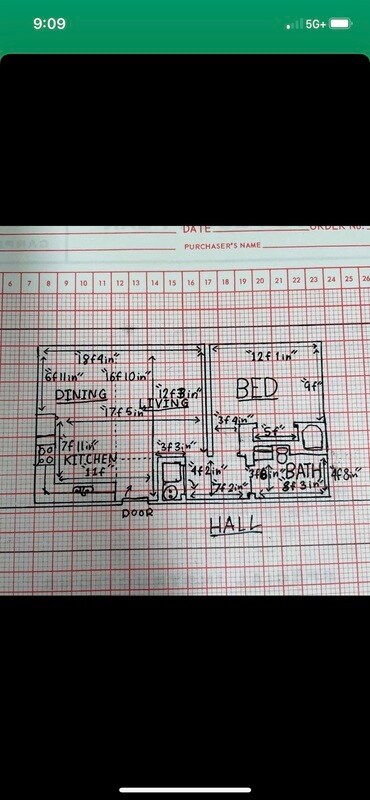 9:09
5G+
DATE
ORDER NO.
PURCHASER'S NAME
6 7 8 9 10 11 12 13 14 15 16 17 18 19 20 21 22 23 24 25 26
18f4in"
12f1in"
6f11in" 16f10in"
9f"
DINING
12f3in"
BED
LIVING
17f5in"
3f4in"
5f"
7f11in"
3f3in"
KITCHEN
4f2in"
BATH
4f8in"
11f"
7f2in"
8f3in"
DOOR
HALL